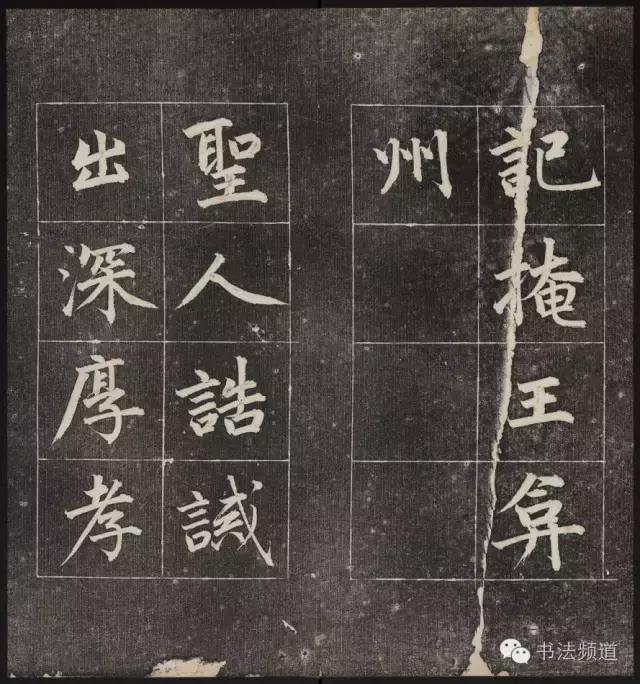 記掩王弇
州
聖人誥誡
出深厚孝
书法频道